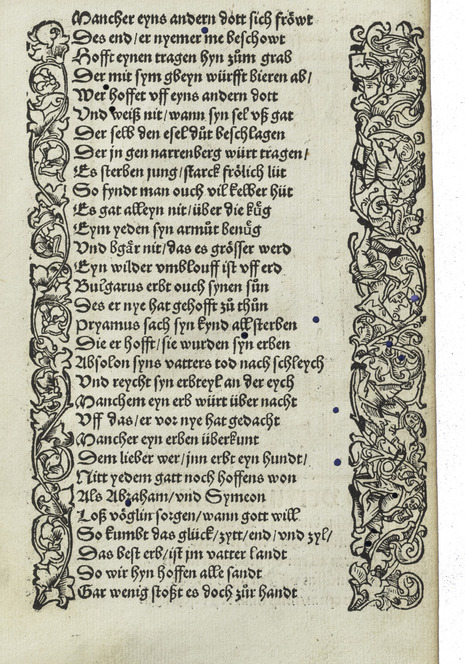 Mancher eyns andern dott sich fröwt
Des end/er nyemer me beschowt
Hofft eynen tragen hyn zům grab
Der mit sym gbeyn würfft bieren ab/
Wer hoffet vff eyns andern dott
Vnd weiß nit/wann syn sel vß gat
Der selb den esel důt beschlagen
Der jn gen narrenberg würt tragen/
Es sterben jung/starck frölich lüt
So fyndt man ouch vil kelber hüt
Es gat alleyn nit/über die kůg
Eym yeden syn armůt benůg
Vnd bgår nit/das es grösser werd
Eyn wilder vmblouff ist vff erd
Bulgarus erbt ouch synen sůn
Des er nye hat gehofft zů thůn
Pryamus sach syn kynd all sterben
Die er hofft/sie wurden syn erben
Absolon syns vatters tod nach schleych
Vnd reycht syn erbteyl an der eych
Manchem eyn erb würt über nacht
Vff das/er vor nye hat gedacht
Mancher eyn erben überkunt
Dem lieber wer/jnn erbt eyn hundt/
Nitt yedem gatt noch hoffens won
Als Abraham/vnd Symeon
Loß vöglin sorgen/wann gott will
So kumbt das glück/zytt/end/vnd zyl/
Das best erb/ist jm vatter landt
Do wir hyn hoffen alle sandt
Gar wenig stoßt es doch zůr handt